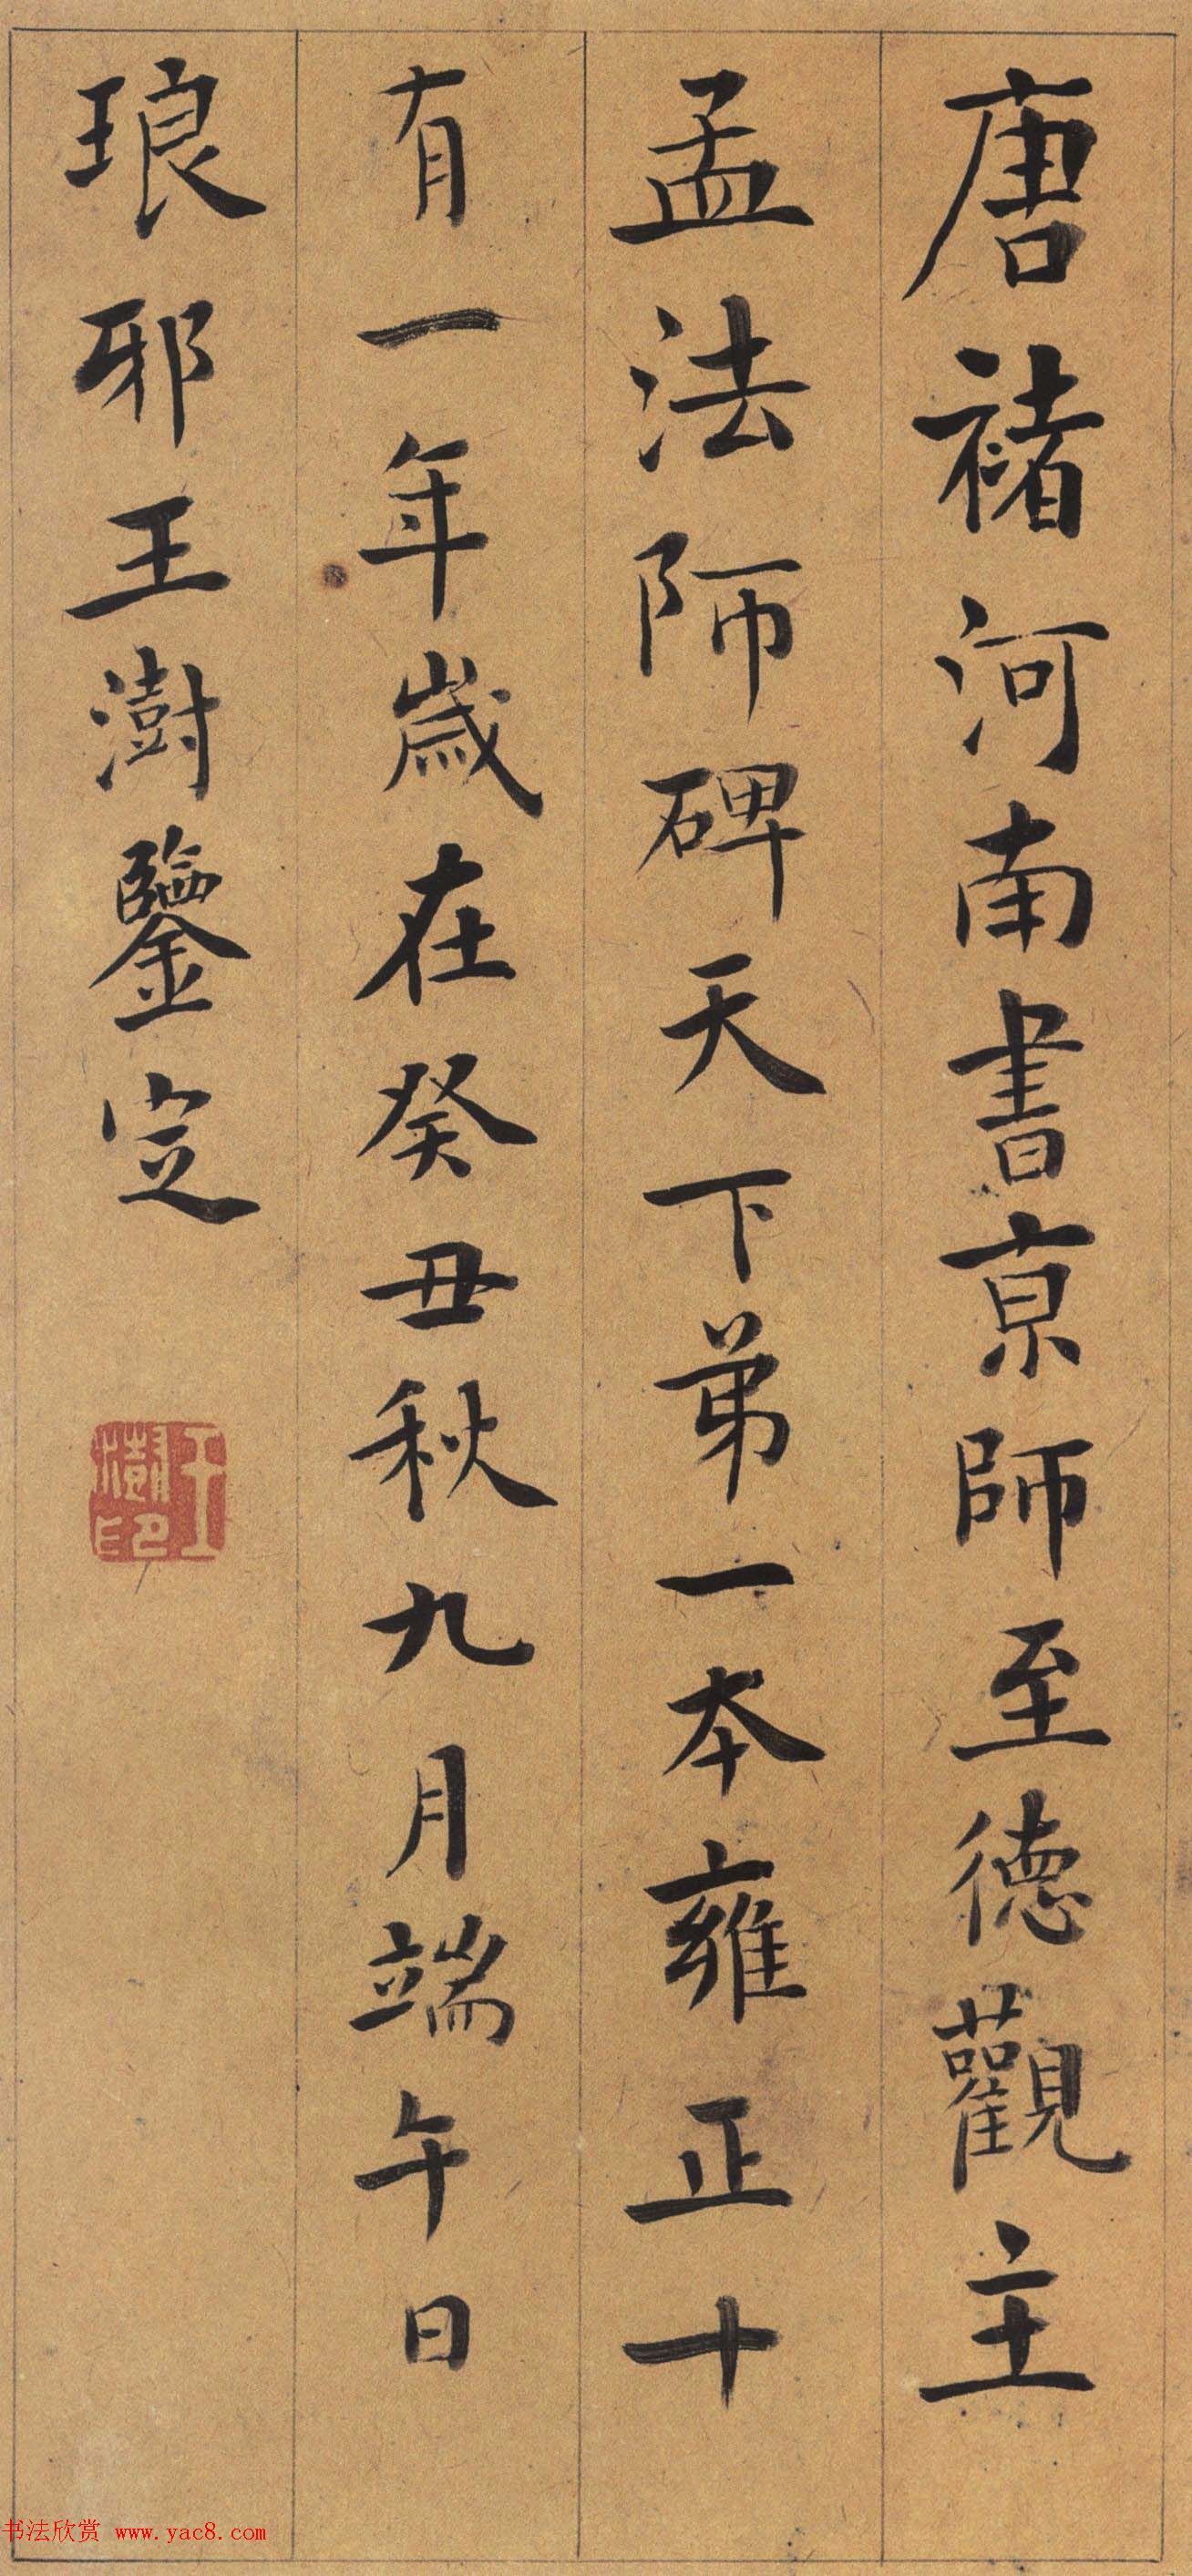 唐褚河南書京師至德觀主
孟法師碑天下弟一本雍正十
有一年歲在癸丑秋九月端午日
琅邪王澍鑒定
王澍印
书法欣赏 www.yac8.com